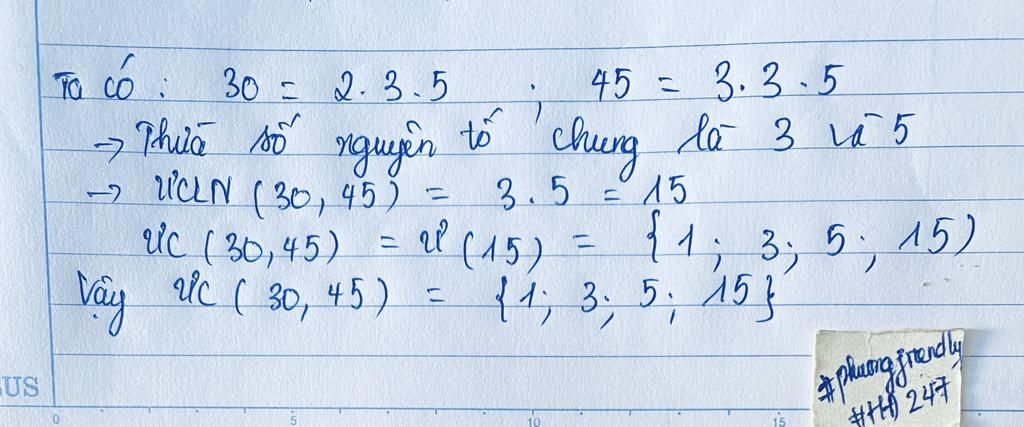 Ta có : 30 = 2.3.5 ; 45 = 3.3.5
→ Thừa số nguyên tố chung là 3 và 5
→ ƯCLN (30, 45) = 3.5 = 15
ƯC (30,45) = Ư (15) = {1; 3; 5; 15)
Vậy ƯC (30, 45) = {1; 3; 5; 15}
#phuongfriendly
247
GUS
0 5 10 15